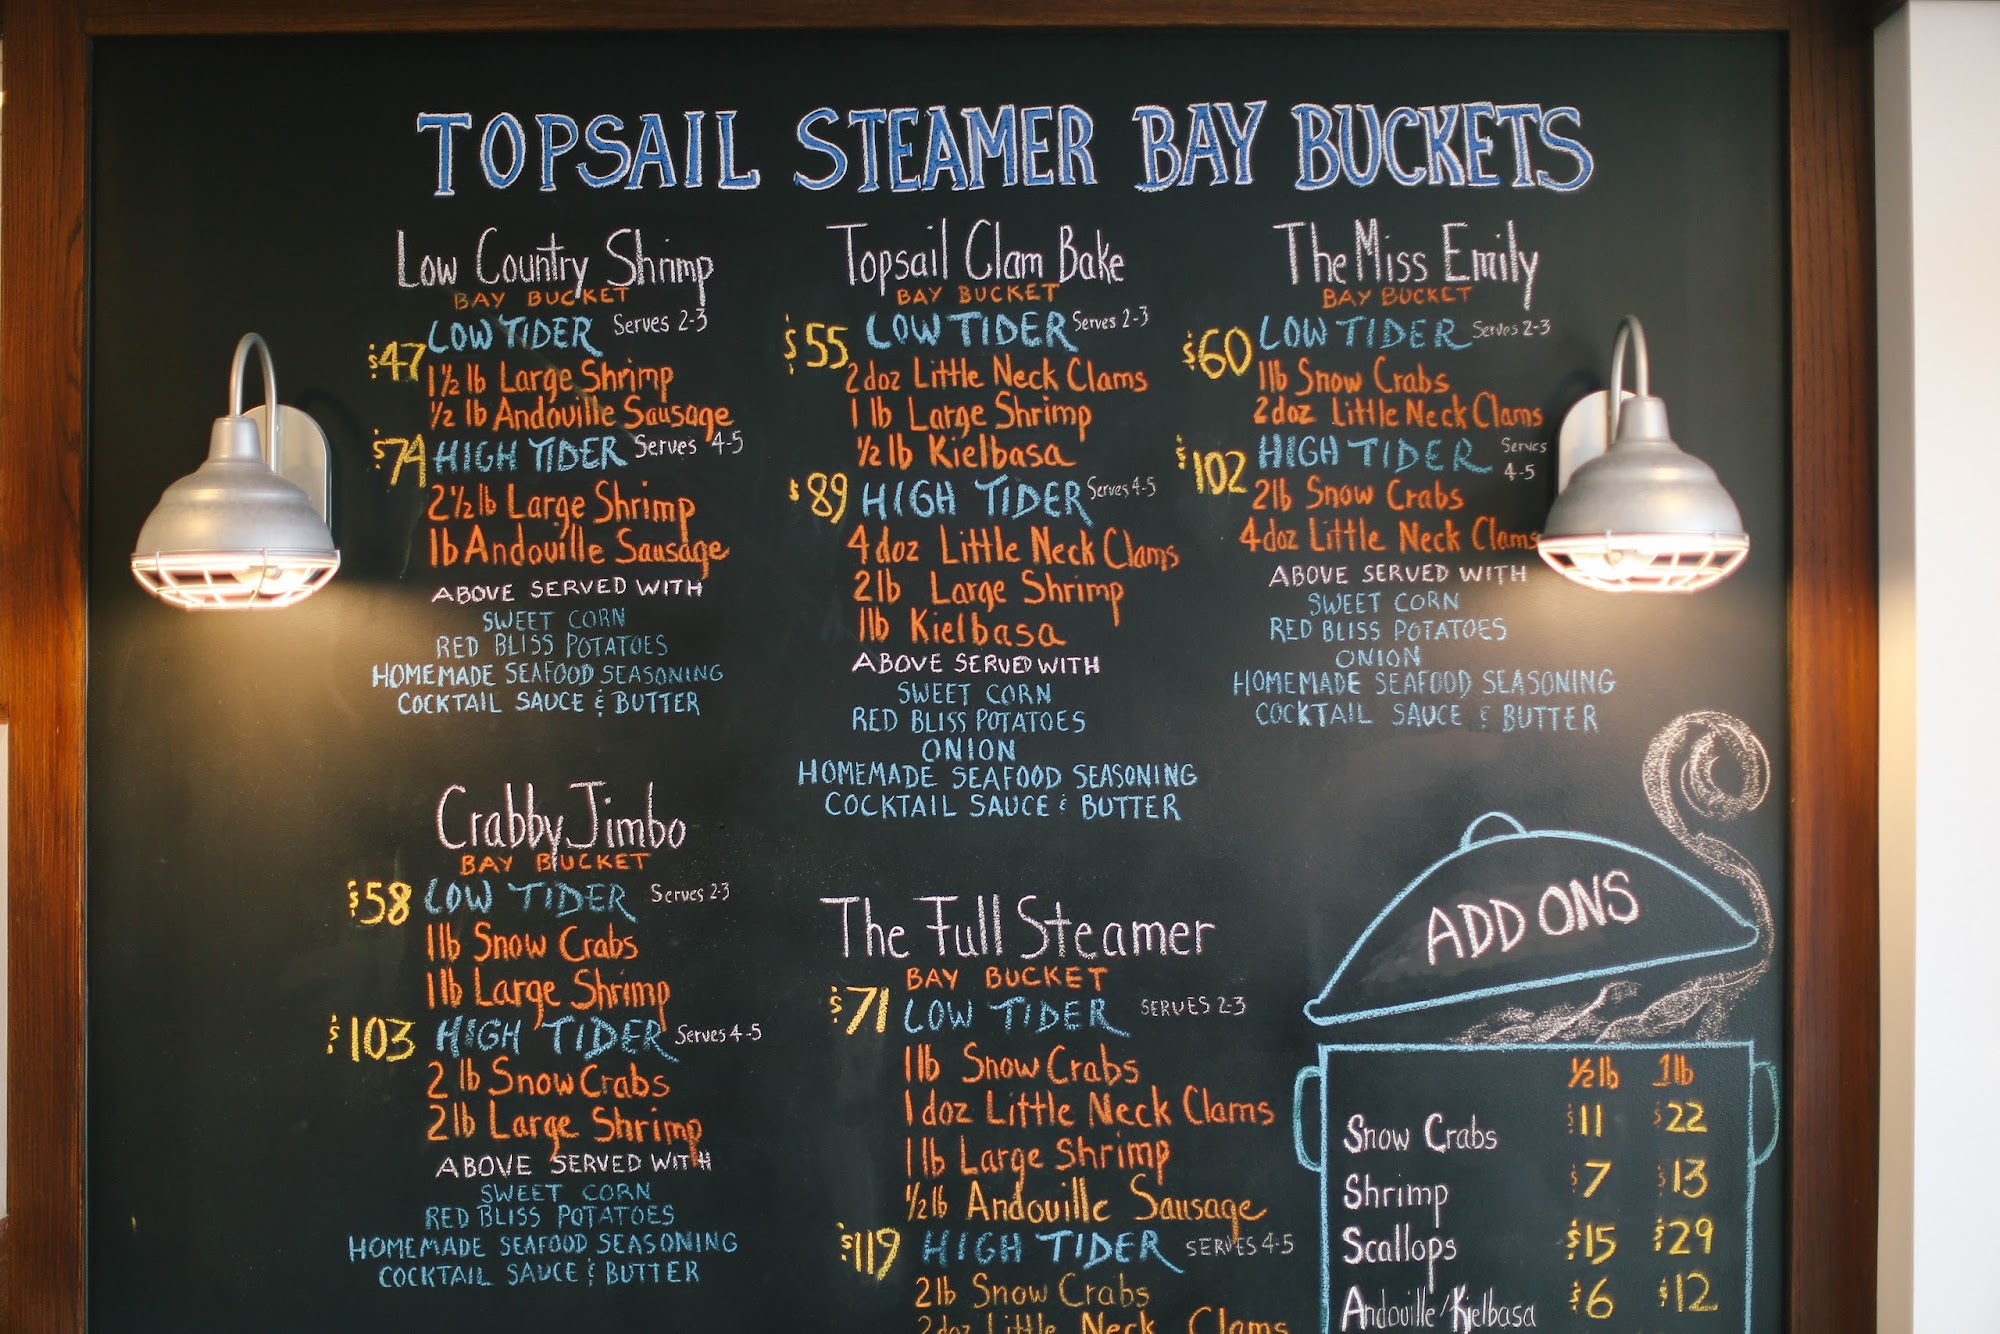 TOPSAIL STEAMER BAY BUCKETS
Low Country Shrimp
BAY BUCKET
$47 LOW TIDER Serves 2-3
1½ lb Large Shrimp
½ lb Andouille Sausage
$74 HIGH TIDER Serves 4-5
2½ lb Large Shrimp
1lb Andouille Sausage
ABOVE SERVED WITH
SWEET CORN
RED BLISS POTATOES
HOMEMADE SEAFOOD SEASONING
COCKTAIL SAUCE & BUTTER
Topsail Clam Bake
BAY BUCKET
$55 LOW TIDER Serves 2-3
2doz Little Neck Clams
1 lb Large Shrimp
½ lb Kielbasa
$89 HIGH TIDER Serves 4-5
4doz Little Neck Clams
2lb Large Shrimp
1lb Kielbasa
ABOVE SERVED WITH
SWEET CORN
RED BLISS POTATOES
ONION
HOMEMADE SEAFOOD SEASONING
COCKTAIL SAUCE & BUTTER
The Miss Emily
BAY BUCKET
$60 LOW TIDER Serves 2-3
1lb Snow Crabs
2doz Little Neck Clams
$102 HIGH TIDER Serves
4-5
2lb Snow Crabs
4doz Little Neck Clams
ABOVE SERVED WITH
SWEET CORN
RED BLISS POTATOES
ONION
HOMEMADE SEAFOOD SEASONING
COCKTAIL SAUCE & BUTTER
Crabby Jimbo
BAY BUCKET
$58 LOW TIDER Serves 2-3
1lb Snow Crabs
1lb Large Shrimp
$103 HIGH TIDER Serves 4-5
2 lb Snow Crabs
2lb Large Shrimp
ABOVE SERVED WITH
SWEET CORN
RED BLISS POTATOES
HOMEMADE SEAFOOD SEASONING
COCKTAIL SAUCE & BUTTER
The Full Steamer
BAY BUCKET
$71 LOW TIDER SERVES 2-3
1lb Snow Crabs
1doz Little Neck Clams
1lb Large Shrimp
½lb Andouille Sausage
$119 HIGH TIDER SERVES 4-5
2lb Snow Crabs
2doz Little Neck Clams
ADD ONS
½lb 1lb
Snow Crabs $11 $22
Shrimp $7 $13
Scallops $15 $29
Andouille/Kielbasa $6 $12